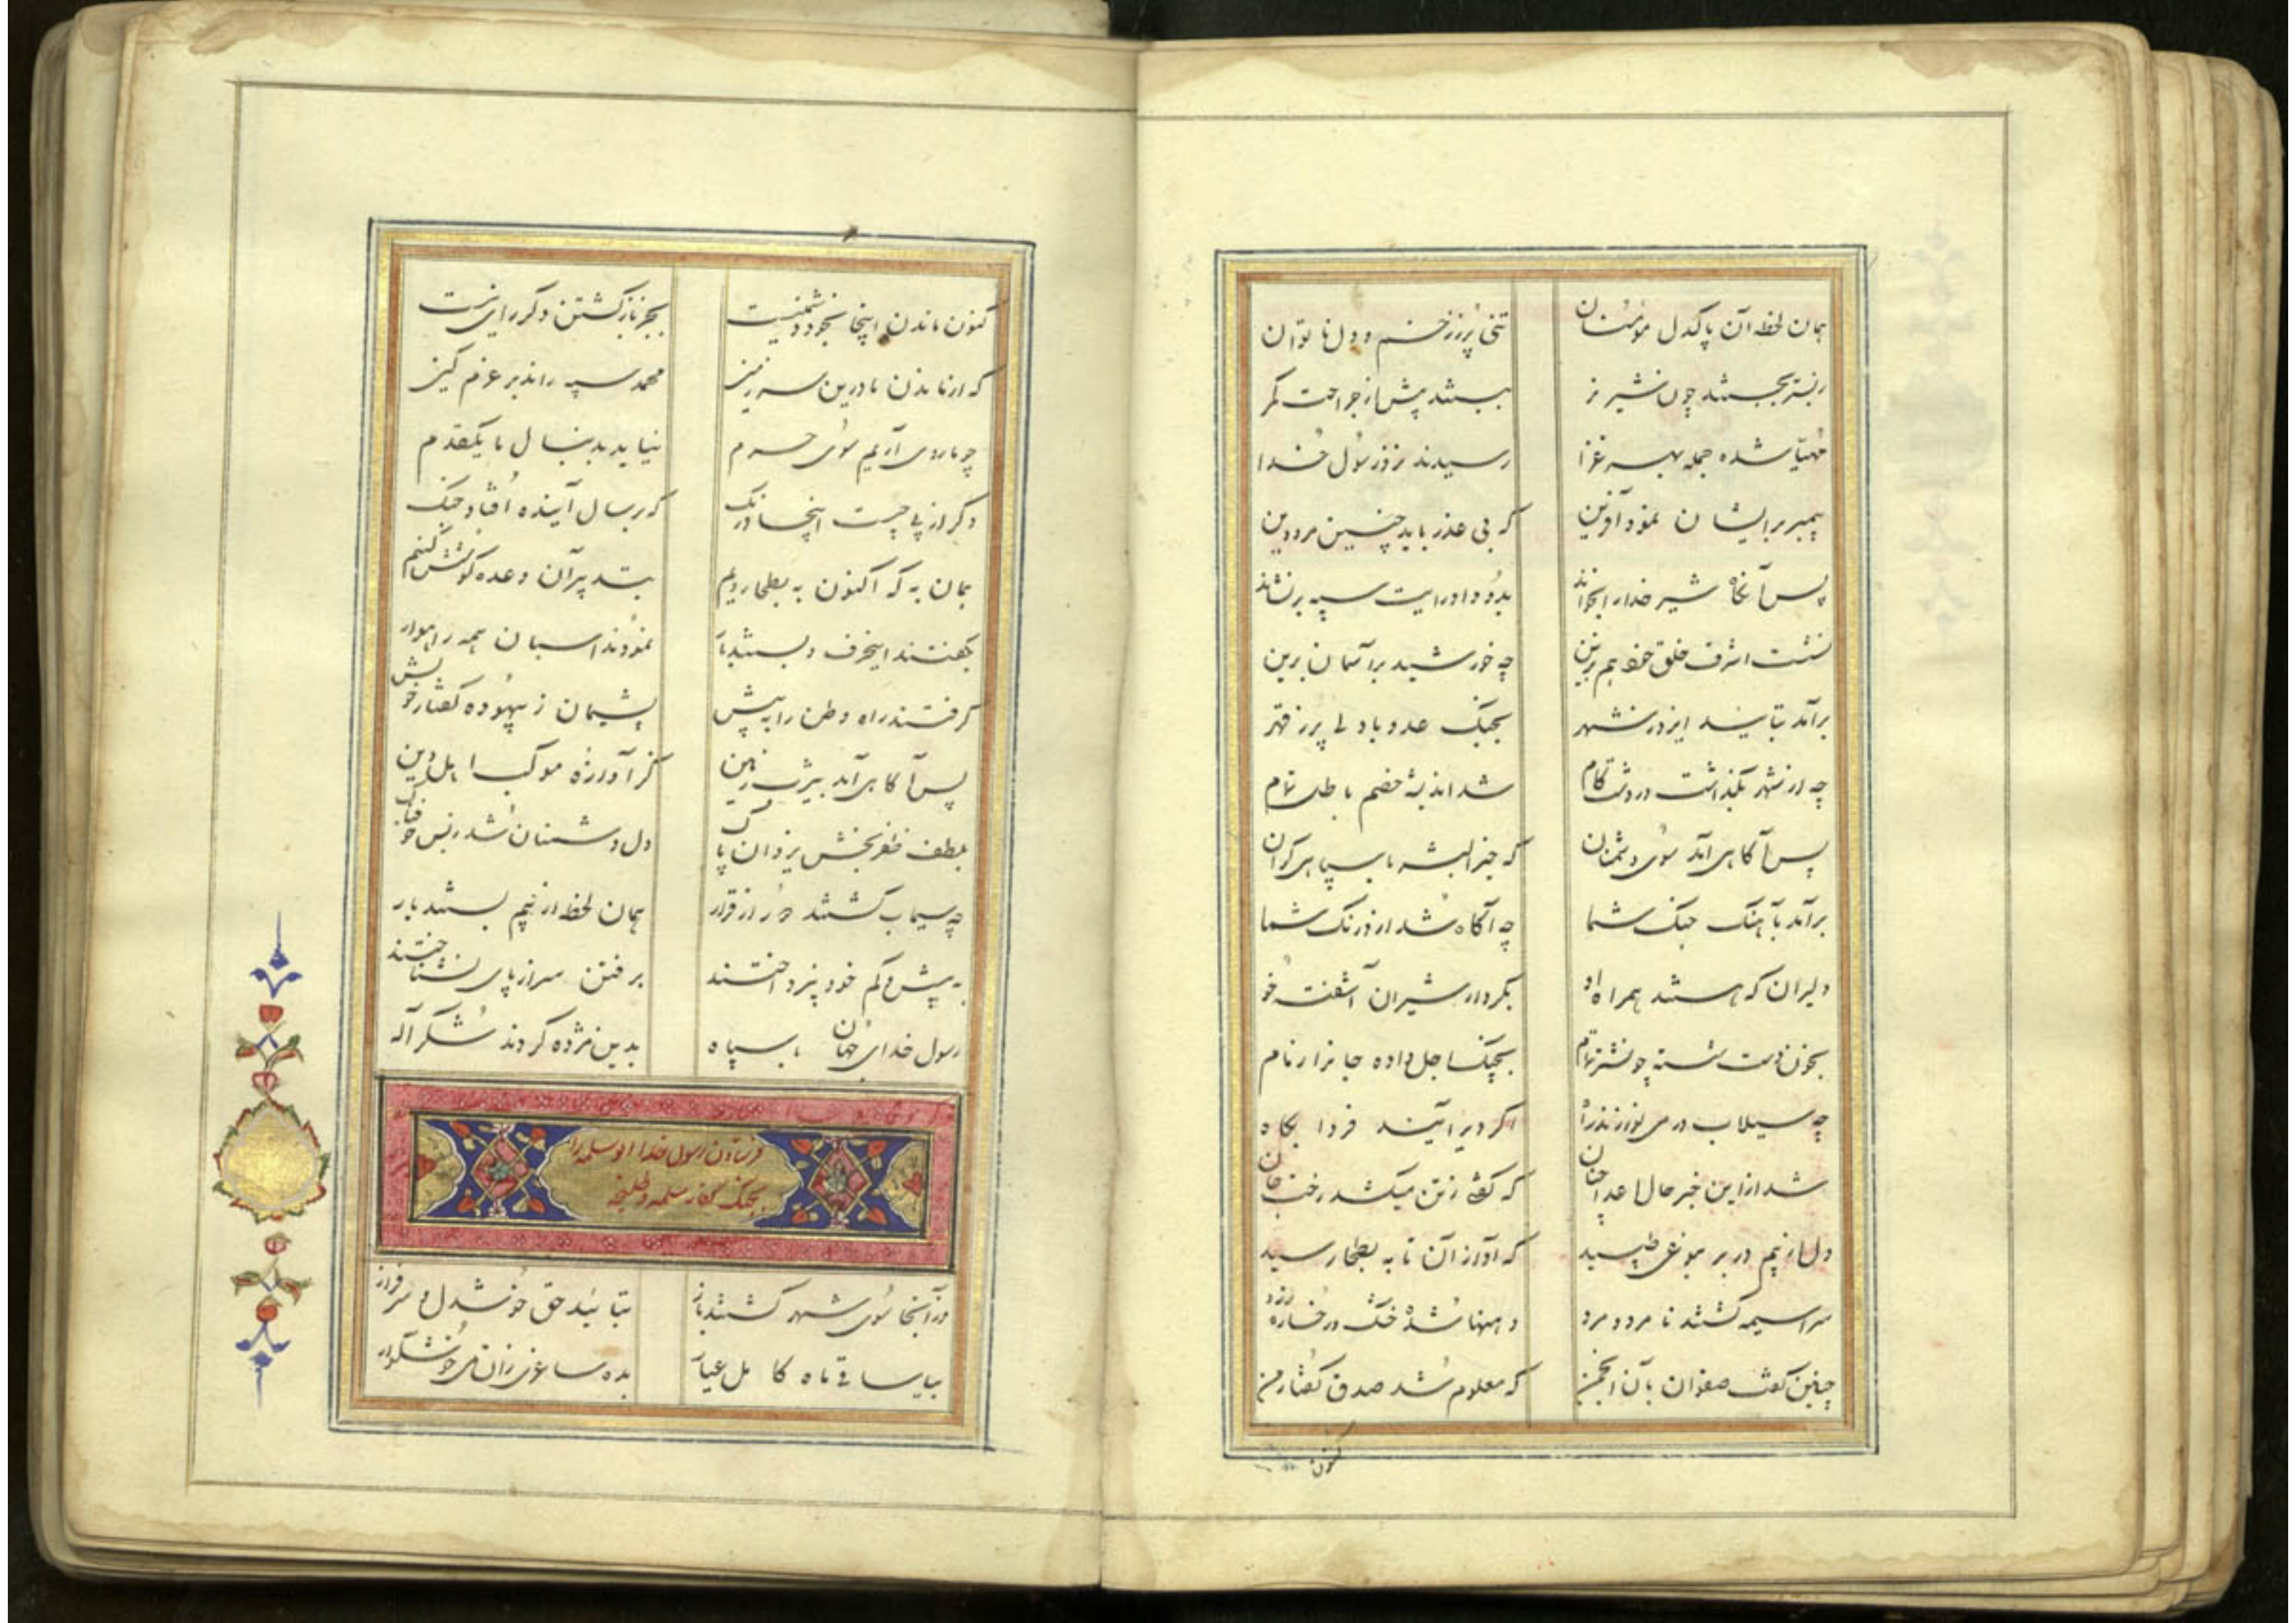 همان لحظه آن پاکدل مؤمنان تنی پر ز زخم و دل ناتوان
ز بستر بجستند چون شیر نر ببستند پیش از جراحت کمر
مهیا شده جمله بهر غزا رسیدند نزد رسول خدا
پیمبر بر ایشان نمود آفرین که بی عذر باید چنین مرد دین
پس آنگاه شیر خدا را بخواند بدو داد رایت سپه بر نشاند
نشست اشرف خلق خود هم بزین چه خورشید بر آسمان برین
برآمد بتایید ایزد ز شهر بجنگ عدو با دلی پر ز قهر
چه از شهر بگذاشت در دشت گام شد اندیشهٔ خصم باطل تمام
پس آگاهی آمد سوی دشمنان که خیر البشر با سپاهی گران
برآمد بآهنگ جنگ شما چه آگاه شد از درنگ شما
دلیران که هستند همراه او بکردار شیران آشفته خو
بخون دست شسته چو نشتر تمام بچنگ اجل داده جانرا زمام
چه سیلاب در می نوردند راه اگر دیر آیند فردا پگاه
شد از این خبر حال اعدا چنان که گفتی ز تن میکشد رخت جان
دل از بیم در بر بنوعی طپید که آواز آن تا به بطحا رسید
سراسیمه گشتند نامرد و مرد دهنها شده خشک و رخساره زرد
چنین گفت صفوان بآن انجمن که معلوم شد صدق گفتار من
کنون
کنون ماندن اینجا بجز دشمنیست بجز بازگشتن دگر رای نیست
که از ماندن ما درین سرزمین محمد سپه راند بر عزم کین
چو ما روی آریم سوی حرم نیاید بدنبال ما یکقدم
دگر از پی چیست اینجا درنگ که بر سال آینده افتاد جنگ
همان به که اکنون به بطحا رویم بتدبیر آن وعده کوشش کنیم
بگفتند اینحرف و بستند بار نمودند اسبان همه راهوار
گرفتند راه وطن را به پیش پشیمان ز بیهوده گفتار خویش
پس آگاهی آمد بیثرب زمین گر آوازهٔ موکب اهل دین
بلطف ظفر بخش یزدان پاک دل دشمنان شد ز بس خوفناک
چه سیماب گشتند دور از قرار همان لحظه از بیم بستند بار
به بیش و کم خود نپرداختند برفتن سر از پای نشناختند
رسول خدای جهان با سپاه بدین مژده کردند شکر اله
فرستادن رسول خدا ابو سلمه را
بجنگ کفار سلمه و طلیحه
وز آنجا سوی شهر گشتند باز بتایید حق خوشدل و سرفراز
بیا ساقی ماه کامل عیار بده ساغری زان می خوشگوار